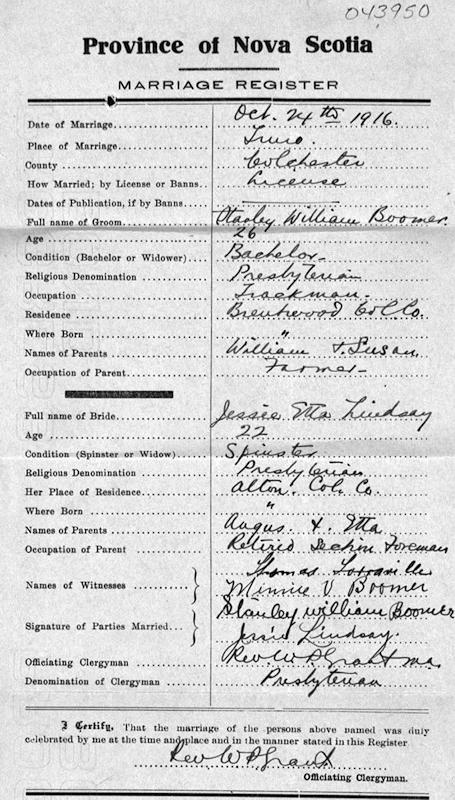 043950
Province of Nova Scotia
MARRIAGE REGISTER
Date of Marriage Oct. 24th 1916.
Place of Marriage Truro.
County Colchester
How Married; by License or Banns License
Dates of Publication, if by Banns
Full name of Groom Stanley William Boomer.
Age 26
Condition (Bachelor or Widower) Bachelor
Religious Denomination Presbyterian
Occupation Trackman.
Residence Brentwood Col Co.
Where Born "
Names of Parents William & Susan
Occupation of Parent Farmer
Full name of Bride Jessie Etta Lindsay
Age 22
Condition (Spinster or Widow) Spinster
Religious Denomination Presbyterian
Her Place of Residence Alton. Col. Co.
Where Born "
Names of Parents Angus & Etta
Occupation of Parent Retired Section Foreman
Thomas
Names of Witnesses } Minnie V Boomer
Stanley William Boomer
Signature of Parties Married } Jessie Lindsay.
Officiating Clergyman Rev. W P Grant M.A.
Denomination of Clergyman Presbyterian
I Certify, That the marriage of the persons above named was duly
celebrated by me at the time and place and in the manner stated in this Register
Rev W P Grant
Officiating Clergyman.